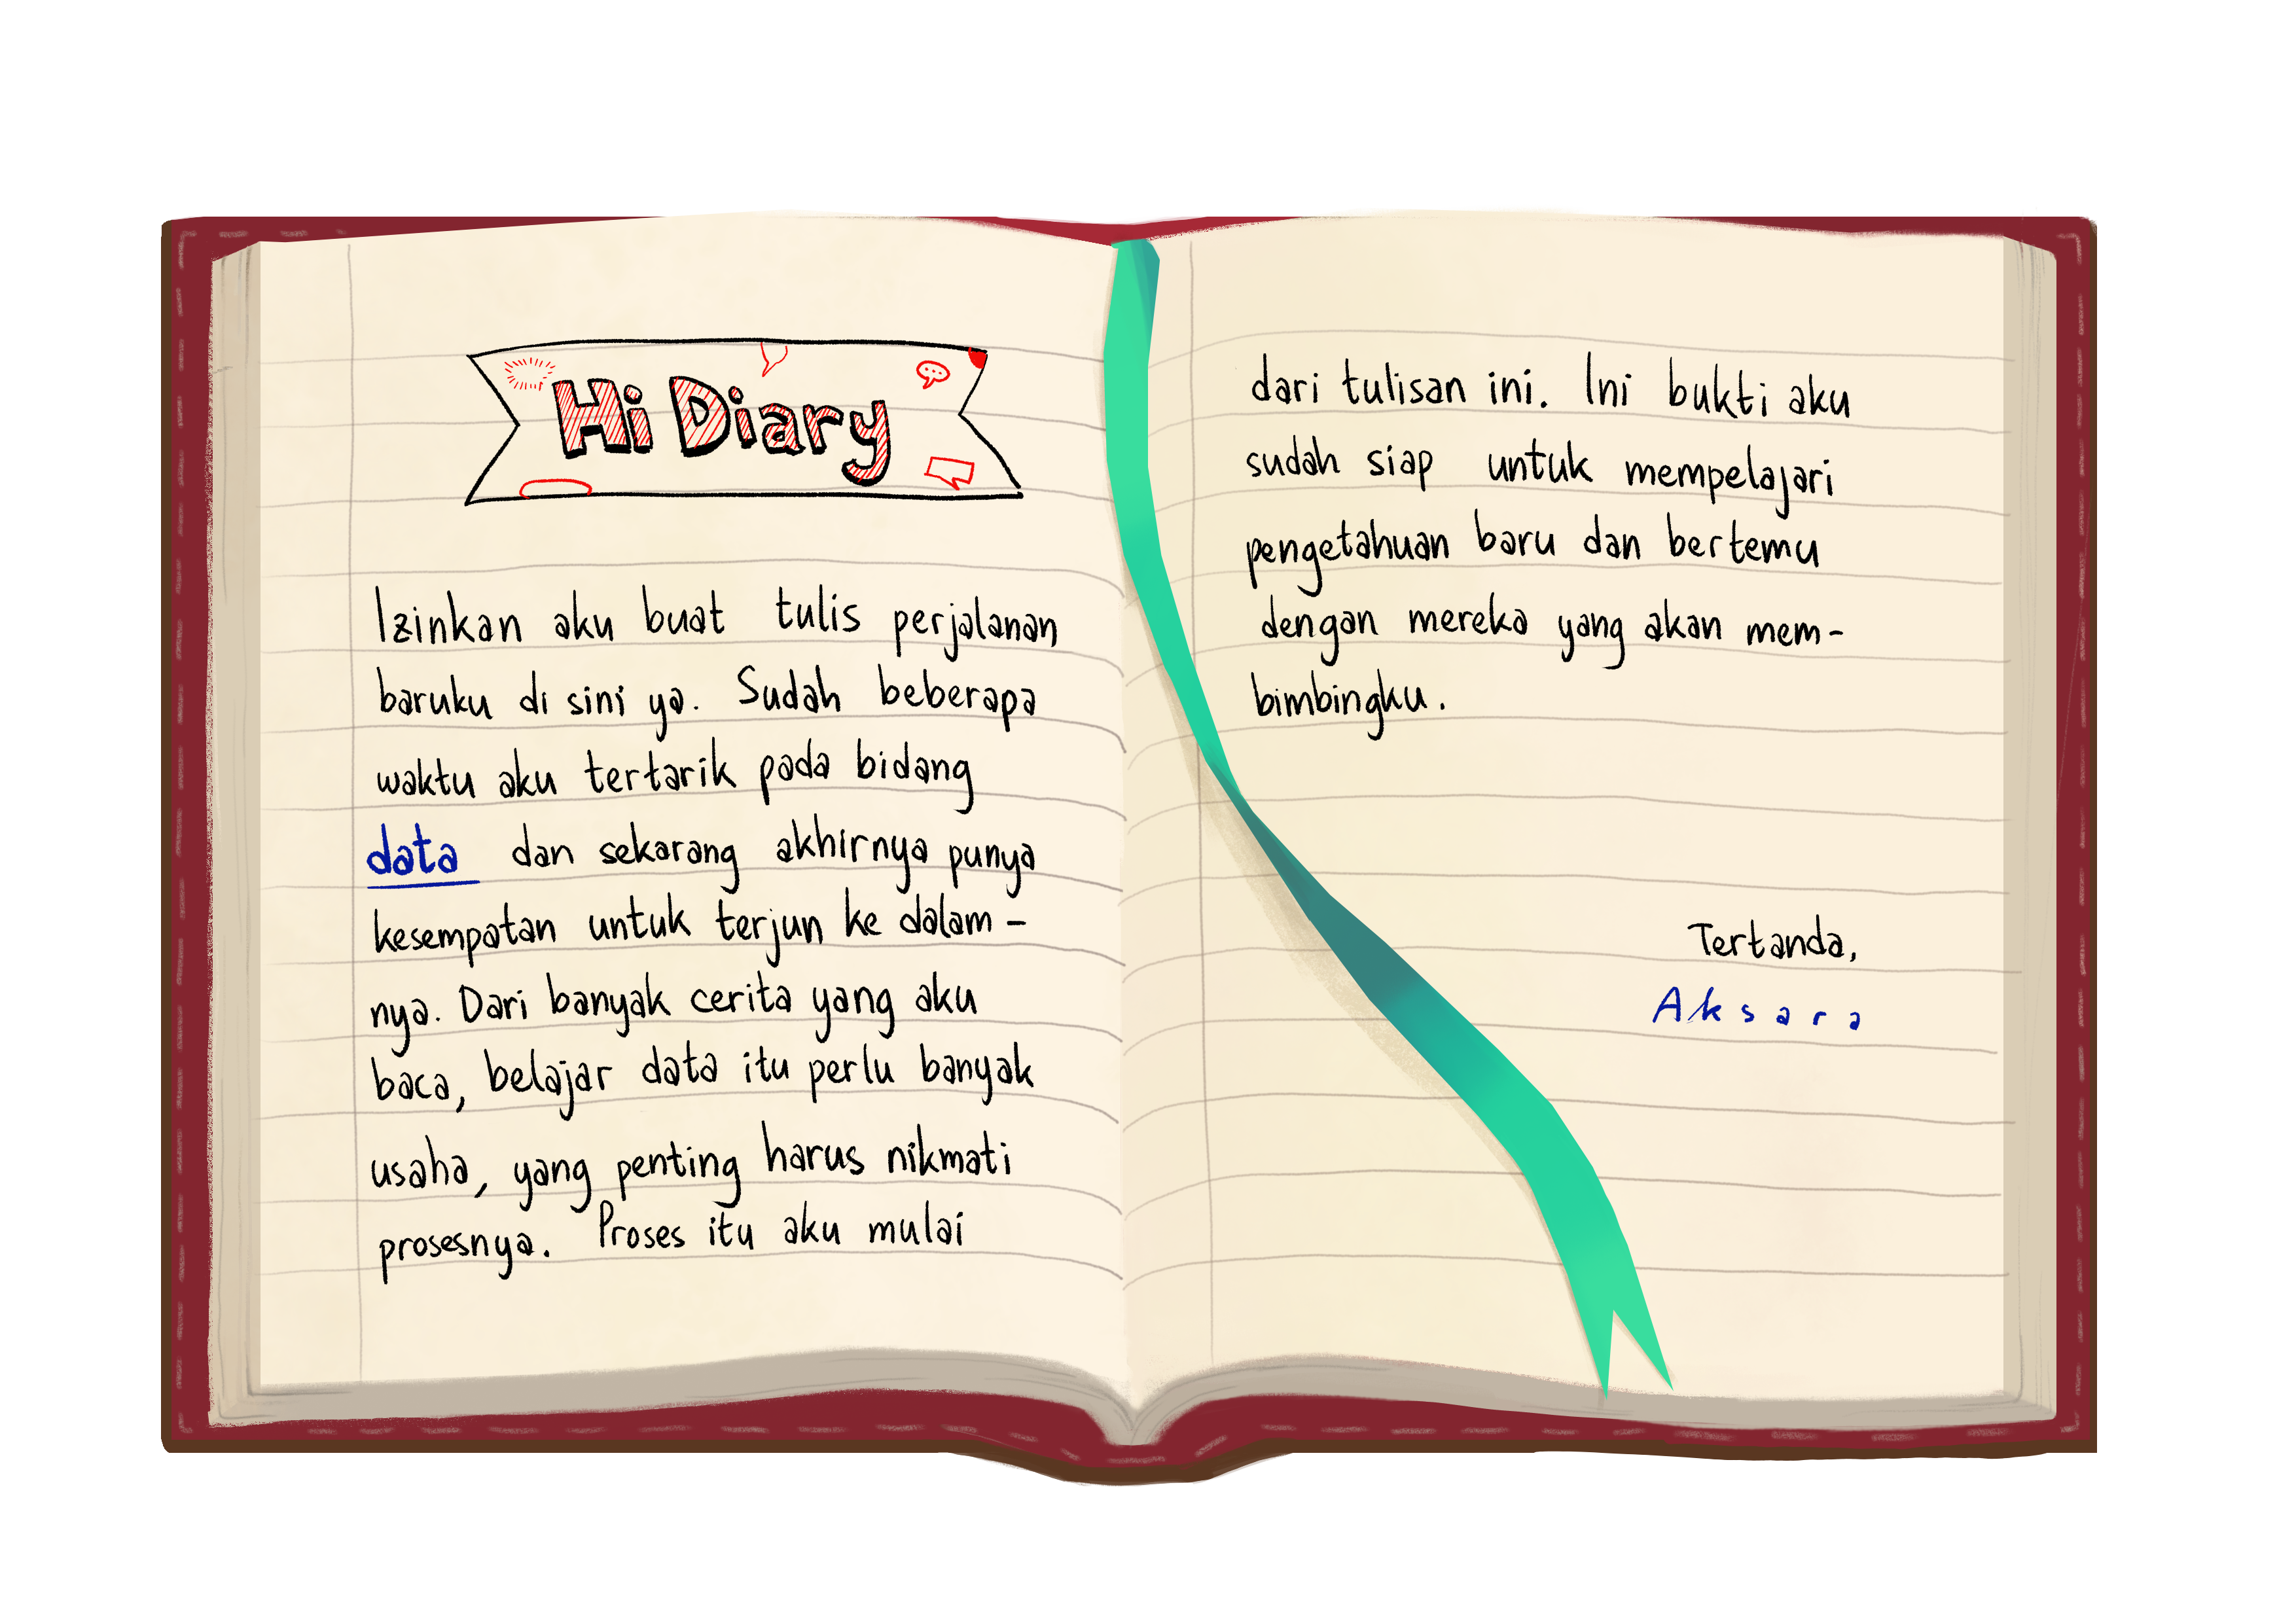 Hi Diary
Izinkan aku buat tulis perjalanan
baruku di sini ya. Sudah beberapa
waktu aku tertarik pada bidang
data dan sekarang akhirnya punya
kesempatan untuk terjun ke dalam-
nya. Dari banyak cerita yang aku
baca, belajar data itu perlu banyak
usaha, yang penting harus nikmati
prosesnya. Proses itu aku mulai
dari tulisan ini. Ini bukti aku
sudah siap untuk mempelajari
pengetahuan baru dan bertemu
dengan mereka yang akan mem-
bimbingku.
Tertanda,
Aksara